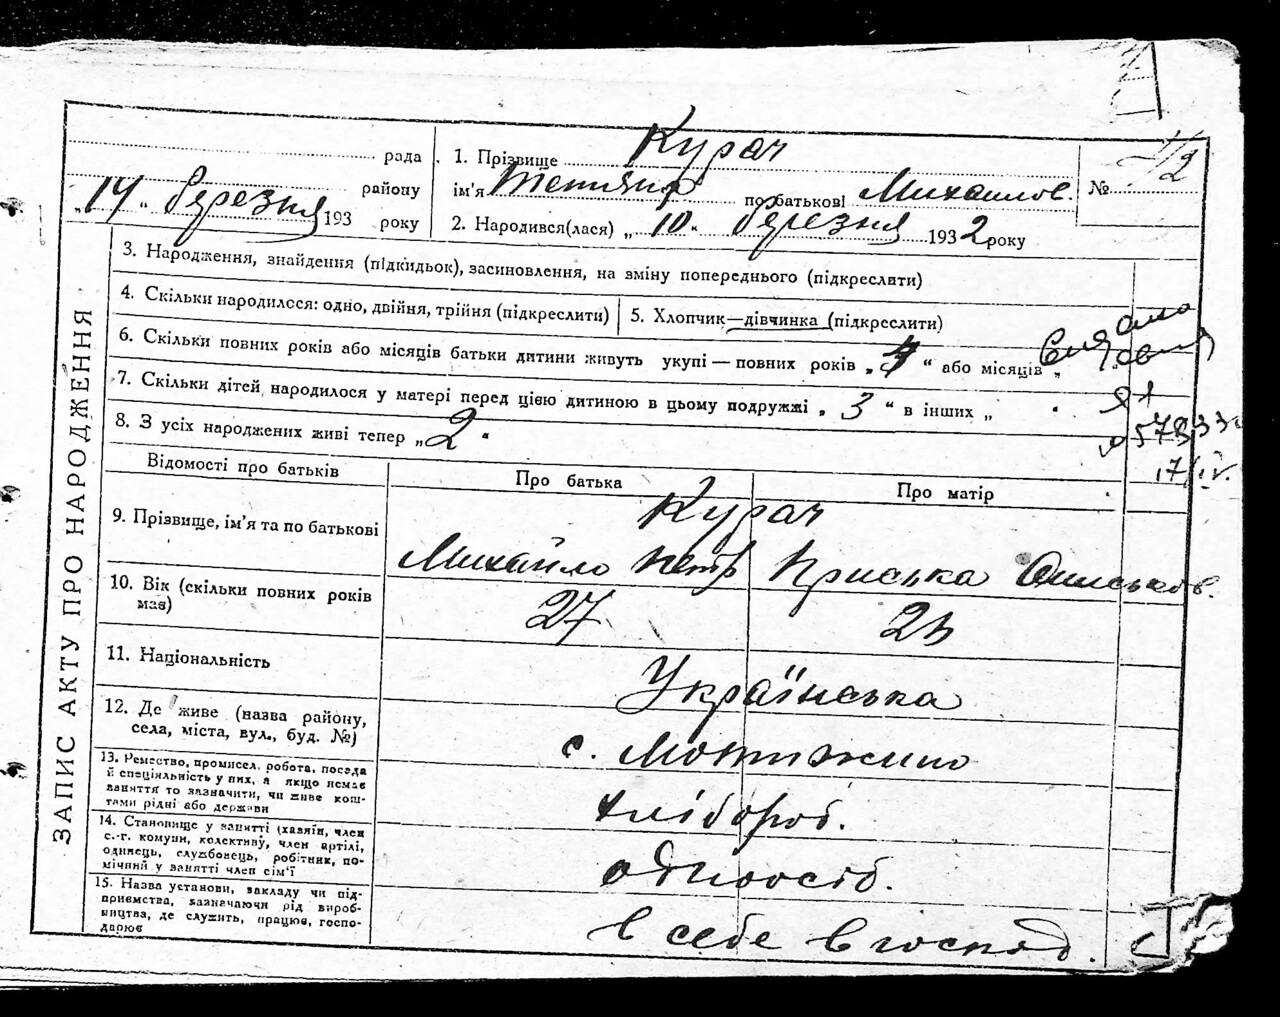 ЗАПИС АКТУ ПРО НАРОДЖЕННЯ
рада
району
„14“ березня 193 року
1. Прізвище Курач
ім'я Тетяна по батькові Михайлов.
2. Народився(лася) „10“ березня 1932 року
№ 12
3. Народження, знайдення (підкидьок), засиновлення, на зміну попереднього (підкреслити)
4. Скільки народилося: одно, двійня, трійня (підкреслити)
5. Хлопчик—дівчинка (підкреслити)
6. Скільки повних років або місяців батьки дитини живуть укупі — повних років „ “ або місяців „
7. Скільки дітей народилося у матері перед цією дитиною в цьому подружжі „3“ в інших „
8. З усіх народжених живі тепер „2“
57833
17/IV.
Відомості про батьків
Про батька
Про матір
9. Прізвище, ім'я та по батькові
Курач
Михайло Петр
Приська Ониськов.
10. Вік (скільки повних років
має)
27
11. Національність
Українська
12. Де живе (назва району,
села, міста, вул., буд. №)
с. Мотижино
13. Ремество, промисел, робота, посада
й спеціяльність у них, а якщо немає
заняття то зазначити, чи живе кош-
тами рідні або держави
хлібороб.
14. Становище у занятті (хазяїн, член
с.-г. комуни, колективу, член артілі,
одинець, службовець, робітник, по-
мічний у занятті член сім'ї
одноосіб.
15. Назва установи, закладу чи під-
приємства, зазначаючи рід вироб-
ництва, де служить, працює, госпо-
дарює
в себе в господ.